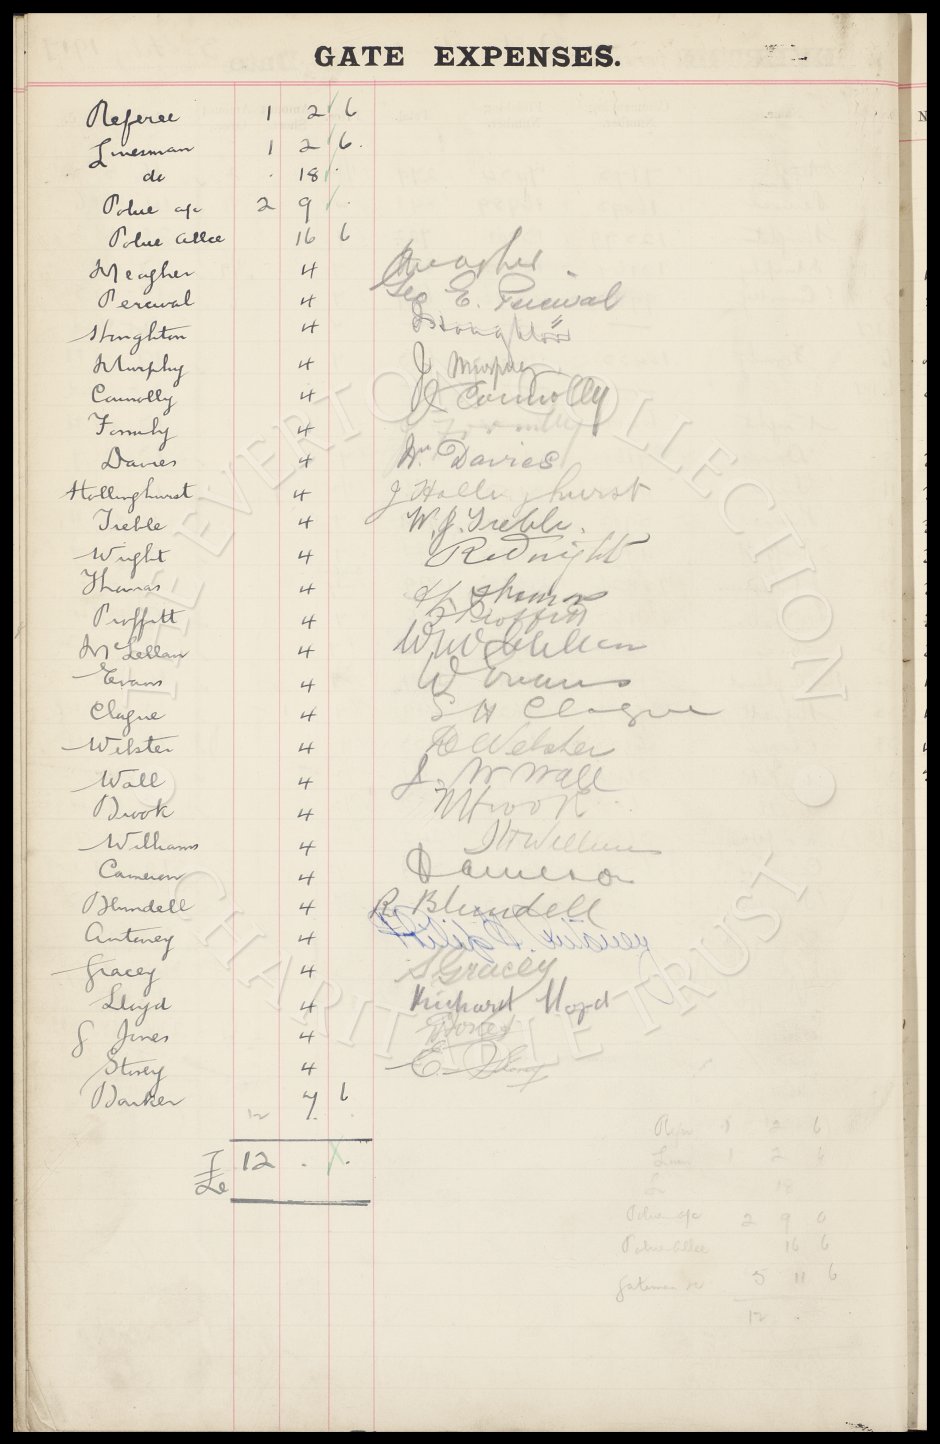 GATE EXPENSES.
Referee 1 2 6
Linesman 1 2 6.
do . 18 .
Police a/c 2 9 .
Police Allce 16 6
Meagher 4 Meagher
Percival 4 Geo E. Percival
Houghton 4 Houghton
Murphy 4 J Murphy
Connolly 4 J Connolly
Formby 4 Formby
Davies 4 Wm Davies
Hollinghurst 4 J Hollinghurst
Treble 4 W. J. Treble.
Wright 4 R Wright
Thomas 4 Thomas
Proffitt 4 Proffitt
McLellan 4 W McLellan
Evans 4 W Evans
Clague 4 S H Clague
Webster 4 Webster
Wall 4 J. W Wall
Brook 4 Brook
Williams 4 Williams
Cameron 4 D Cameron
Blundell 4 R Blundell
Anteney 4 Philip Anteney
Gracey 4 S Gracey
Lloyd 4 Richard Lloyd
G Jones 4 G Jones
Storey 4 E. Storey
Barker 7 6
12
12 . .
Refe 1 2 6
Lines 1 2 6
Li 18
Police a/c 2 9 0
Police Allce 16 6
Gatemen 5 11 6
12
THE EVERTON COLLECTION
CHARITABLE TRUST